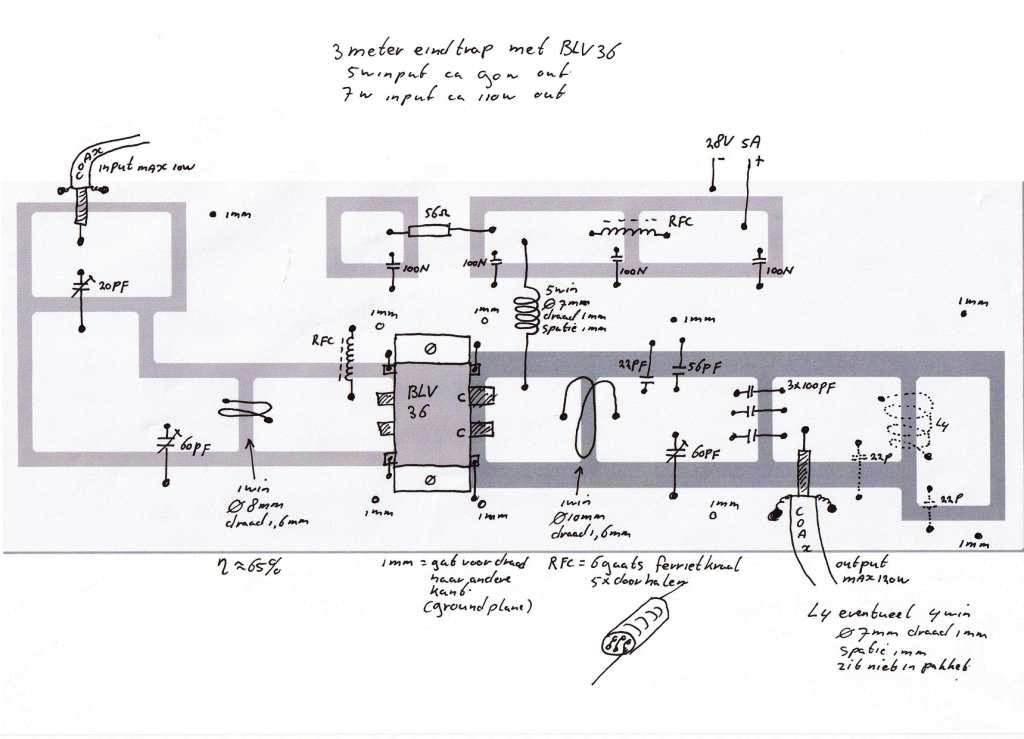 3 meter eindtrap met BLV36
5w input ca 90w out
7w input ca 110w out
COAX
input max 10w
28V 5A
- +
1mm
56Ω
RFC
20PF
100N
100N
100N
100N
5 win
Ø 7mm
draad 1mm
spatie 1mm
1mm
1mm
1mm
1mm
RFC
BLV
36
C
C
22PF
56PF
3x100PF
L4
60PF
60PF
22P
22P
1 win
Ø 8mm
draad 1,6mm
1mm
1mm
1 win
Ø 10mm
draad 1,6mm
1mm
COAX
1mm
η ≈ 65%
1mm = gat voor draad
naar andere
kant
(groundplane)
RFC = 6 gaats ferrietkraal
5x doorhalen
output
max 120w
L4 eventueel 4 win
Ø 7mm draad 1mm
spatie 1mm
zit niet in pakket